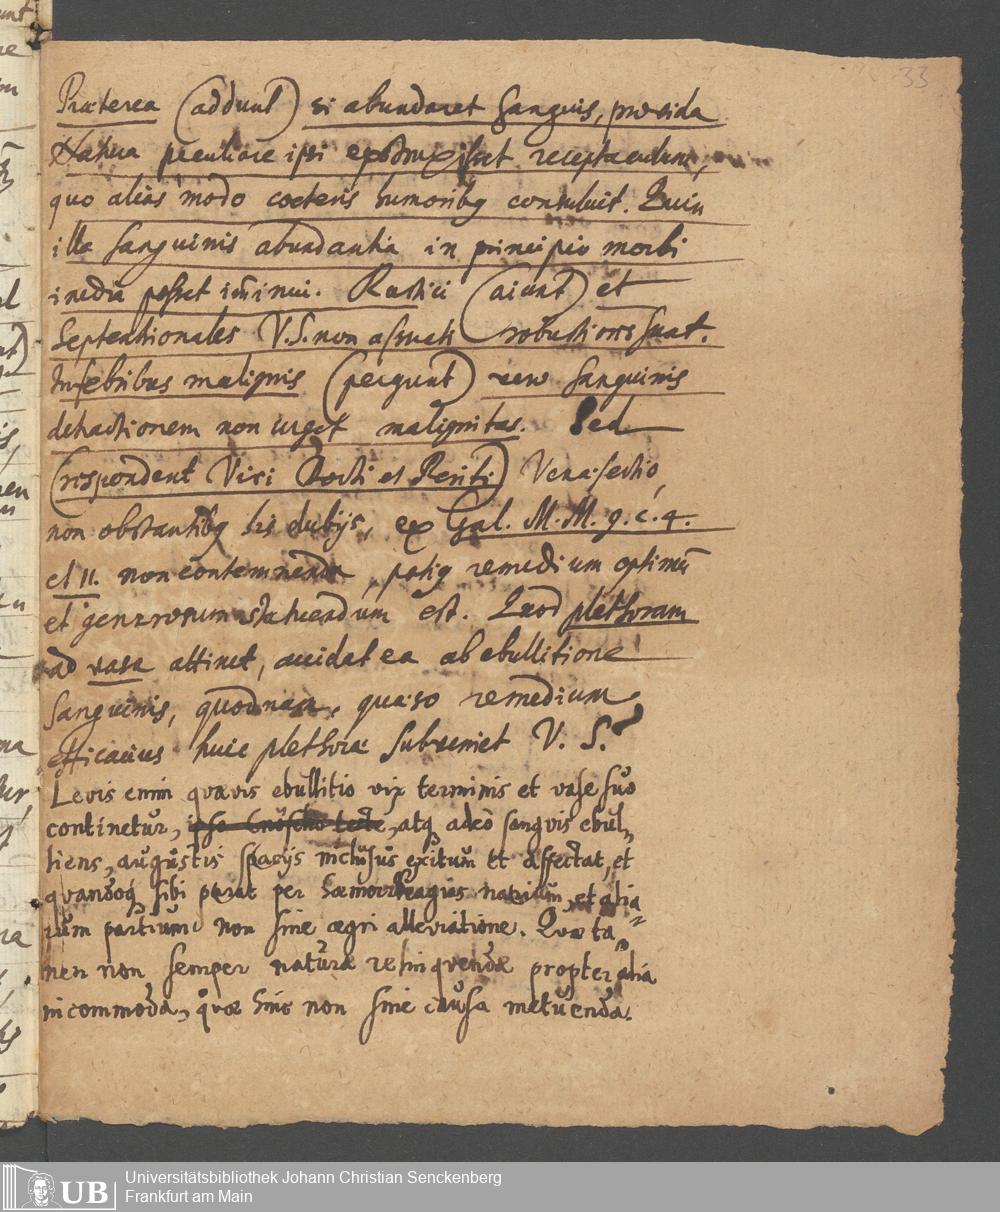 33
Præterea (addunt) si abundaret Sanguis, provida
Natura peculiare ipsi exstruxisset receptaculum,
quo alias modo cœteris humoribq consuluit. Quin
illa sanguinis abundantia in principio morbi
inedia posset im̄inui. Rustici (aiunt) et
Septentrionales V.S. non assueti robustiores sunt.
In febribus malignis (pergunt) vero sanguinis
detractionem non urget malignitas. Sed
(respondent Viri Docti et Periti) Venæsectio,
non obstantibq his dubijs, ex Gal. M.M. 9. c. 4.
et 11. non contemnenda, potiq remedium optimū
et generosum statuendum est. Quod plethoram
ad vasa attinet, accidat ea ab ebullitione
Sanguinis, quodnam, quæso remedium
efficacius huic plethoræ subveniet V. S.
Levis enim quævis ebullitio vix terminis et vase suo
continetur, atq adeo sanguis ebul,
liens, augustis spacijs inclusus exitum et affectat, et
quandoq sibi parat per hæmorrhagias narium, et alia
rum partium non sine ægri alleviatione. Quæ ta,
men non semper naturæ relinquendæ propter alia
incommoda, quæ hinc non sine causa metuenda.
UB
Universitätsbibliothek Johann Christian Senckenberg
Frankfurt am Main